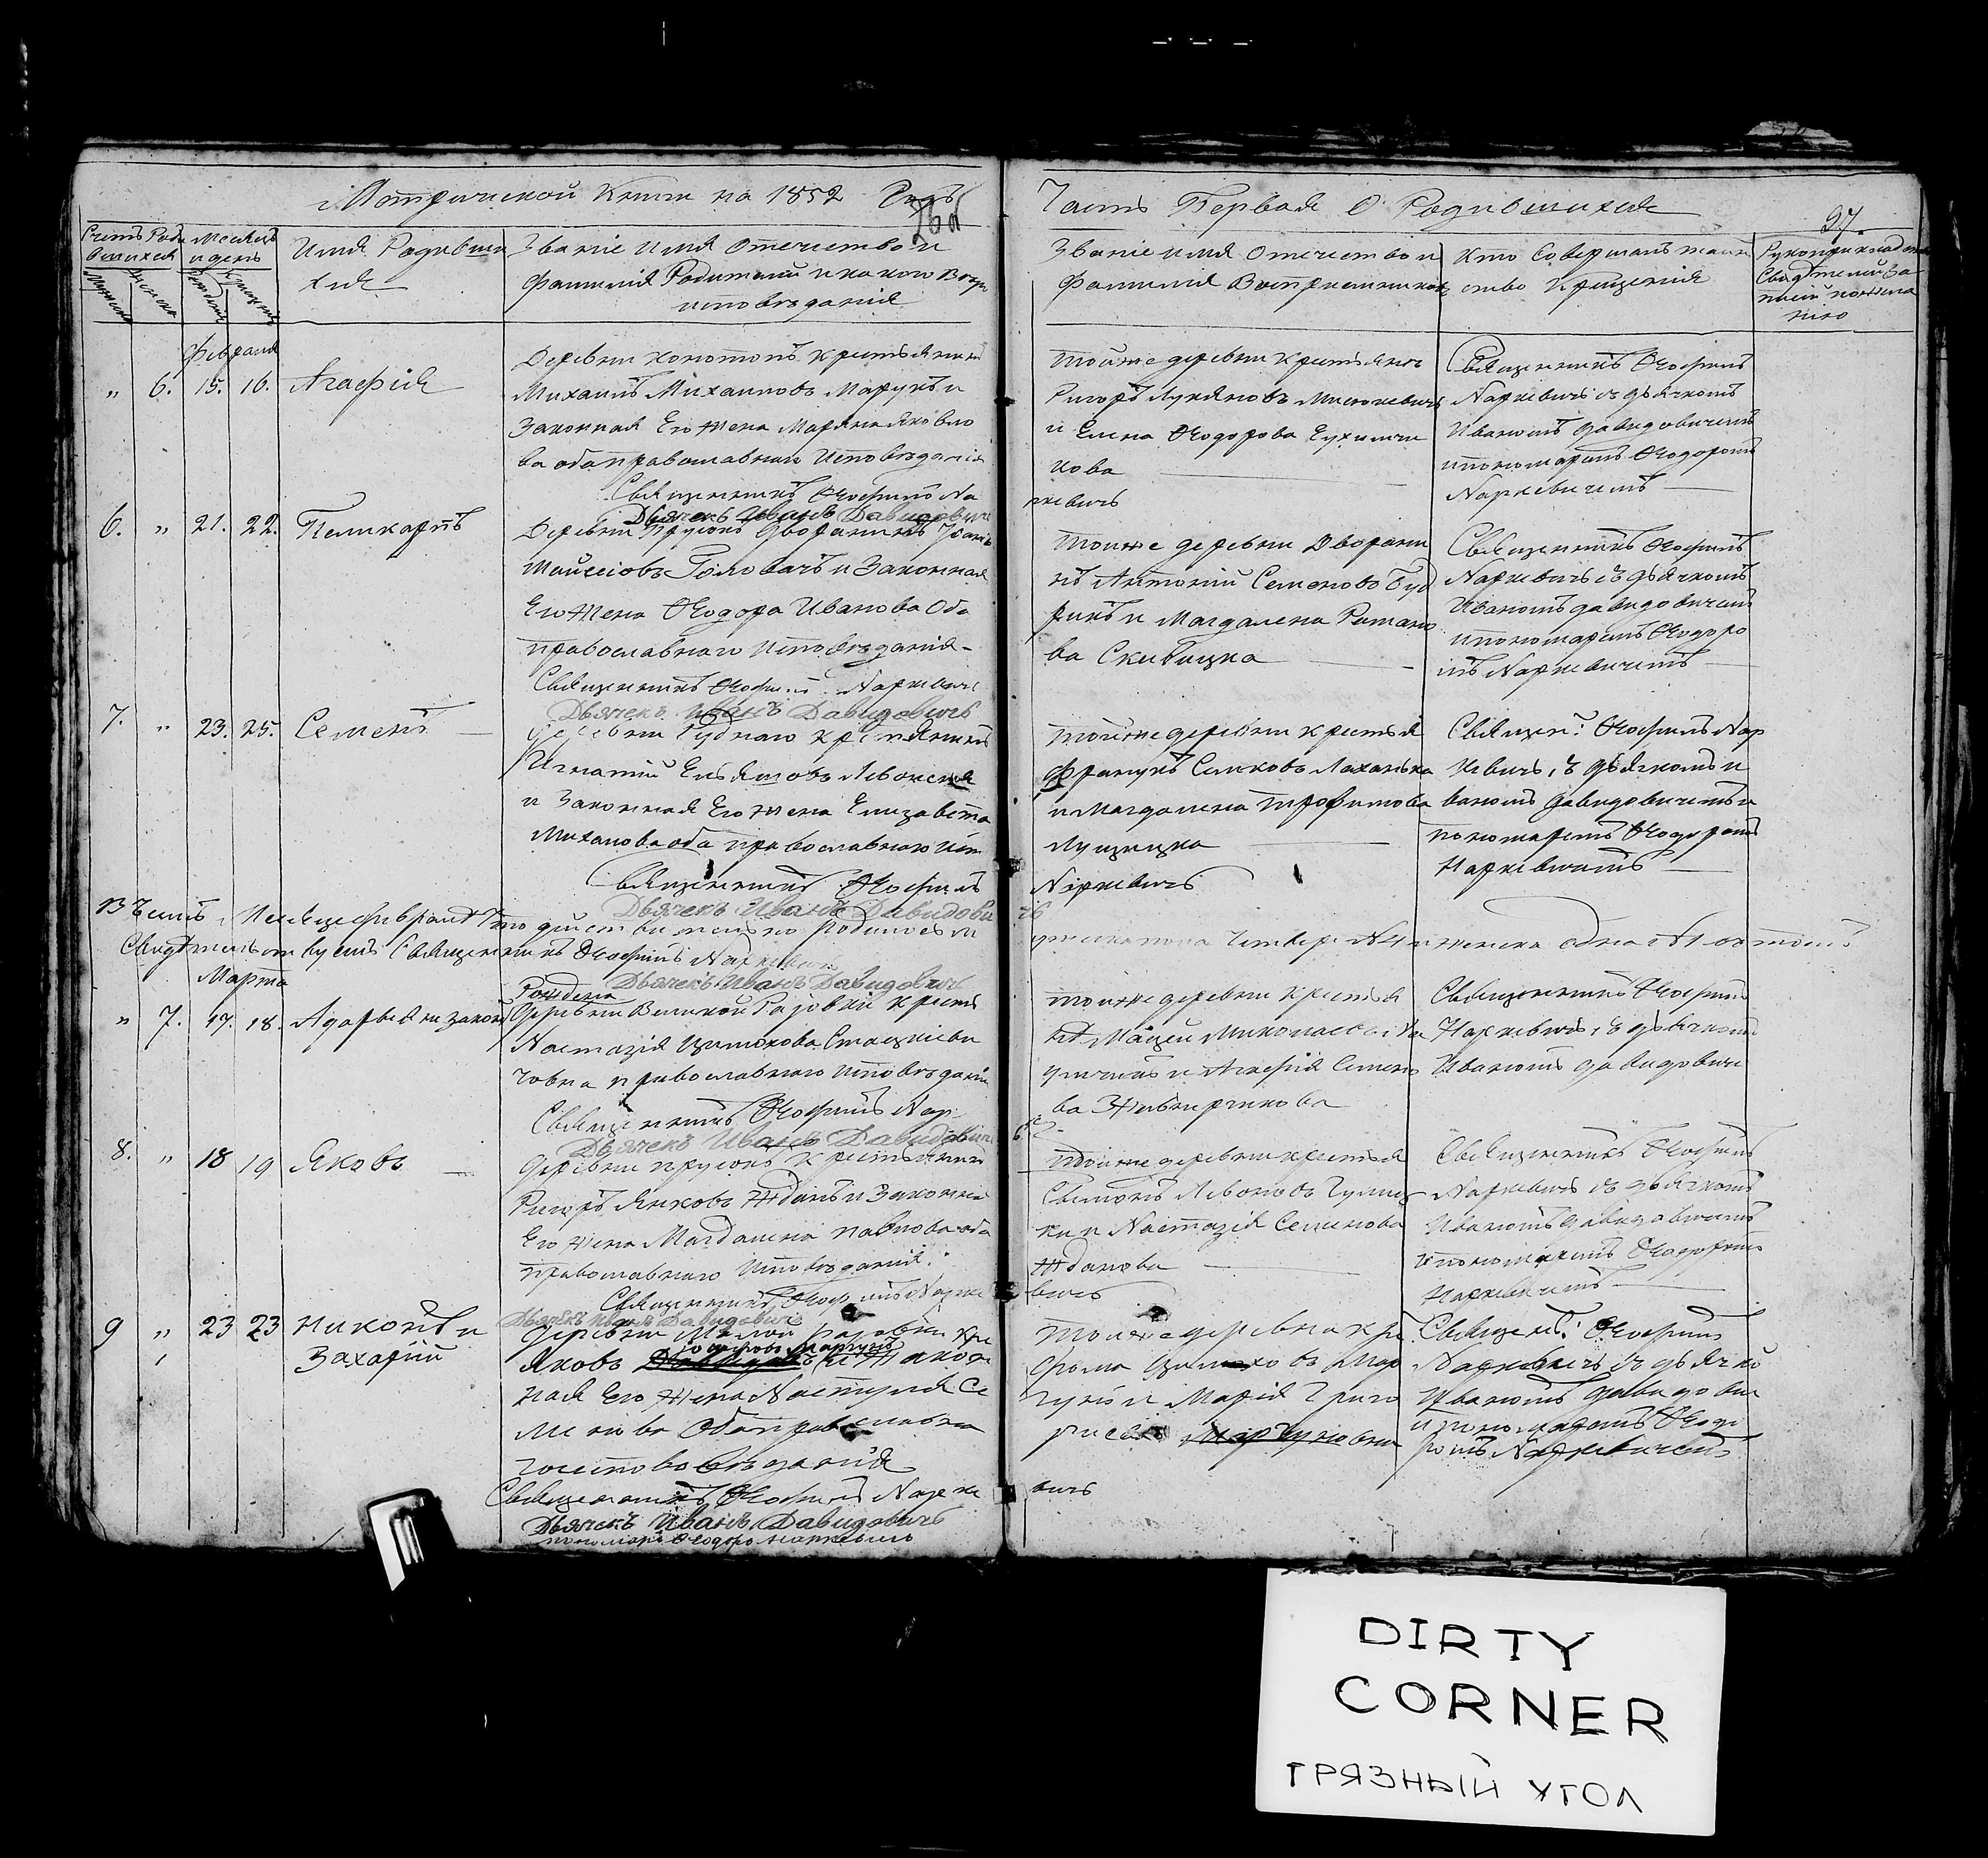 Метрической Книги на 1852 Годъ
Часть Первая О Родившихся
97.
Счетъ Роди
вшихся
Мѣсяцъ
и день
Имя Родивши
хся
Званіе имя отечество и
фамилія Родителей и какого Вѣро
исповѣданія
Званіе имя отечество и
фамилія Воспріемников
Кто Совершалъ таин
ство Крещенія
Рукоприкладство
Свидѣтелей за
писи по жела
нію
Февраля
" 6. 15. 16. Агафія
Деревни Конотопъ крестьянинъ
Михаилъ Михаиловъ Марукъ и
Законная Его Жена Маряна Яковлo
ва оба православнаго исповѣданія
Священникъ Ѳеофилъ На
Дьячекъ Иванъ Давидовичъ
тойже деревни крестьянъ
Ригоръ Лукяновъ
и Елена Ѳеодорова
кова
ркевичъ
Священникъ Ѳеофилъ
Наркевичъ съ дьячкомъ
Иваномъ Давидовичемъ
и пономаремъ Ѳеодоромъ
Наркевичемъ
6. " 21. 22. Поликарпъ
Деревни Прусокъ Дворянинъ
Мойсіовъ Головачъ и Законная
Его Жена Ѳеодора Иванова Оба
православнаго исповѣданія
Священникъ Ѳеофилъ Наркевичъ
Дьячекъ Иванъ Давидовичъ
тойже деревни Дворяни
нъ Антоній Семеновъ Буд
рикъ и Магдалена Романо
ва Скибицка
Священникъ Ѳеофилъ
Наркевичъ съ дьячкомъ
Иваномъ Давидовичемъ
и пономаремъ Ѳеодоро
мъ Наркевичемъ
7. " 23. 25. Семенъ
деревни Рудного крестьянинъ
Игнатій Ельяшовъ
и Законная Его Жена Елизавета
Миханова оба православнаго исп
Священникъ Ѳеофилъ
Дьячекъ Иванъ Давидови
тойже деревни крестья
Францукъ Сымковъ
и Магдалена Трофимова
Лущицка
Наркевичъ
чъ
Священ: Ѳеофилъ Нар
кевичъ, съ дьячкомъ и
ваномъ Давидовичемъ и
пономаремъ Ѳеодоромъ
Наркевичемъ
Въ семъ Мѣсяце февралѣ что дѣйствительно родилось м
ужеска пола Четверо №4 и женска одна №1 въ томъ
Свидѣтельствуемъ Священникъ Ѳеофилъ Наркевичъ
Дьячекъ Иванъ Давидовичъ
Марта
" 7. 17. 18. Дарья незакон
Рождена
Деревни Великой Раіовки крест
Настазія Цимохова
човна православнаго исповѣданія
Священникъ Ѳеофилъ Нар
Дьячекъ Иванъ Давидовичъ
тойже деревни крестья
Мацей Миколаевъ
и Агафія Семено
ва
Священникъ Ѳеофилъ
Наркевичъ, съ дьячкомъ
Иваномъ Давидовиче
8. " 18 19 Яковъ
Деревни Прусокъ крестьянинъ
Ригоръ Янковъ Жданъ и Законная
Его Жена Магдалена Павлова оба
православнаго исповѣданія.
Священникъ Ѳеофилъ Нарке
Дьячекъ Иванъ Давидовичъ
тойже деревни крестья
Сымонъ Левоновъ
ки и Настазія Семенова
Жданова
вичъ
Священникъ Ѳеофилъ
Наркевичъ съ дьячкомъ
Иваномъ Давидовичемъ
и пономаремъ Ѳеодоромъ
Наркевичемъ
9 " 23 23 Никонъ и
Захарій
Деревни Малой Раіовки Кре
Яковъ
ная Его Жена Настулія Се
менова Оба православна
го исповѣданія
Священникъ Ѳеофилъ Нарке
Дьячекъ Иванъ Давидовичъ
пономаръ Ѳеодоръ Наркевичъ
тойже деревни кре
Ѳома Цимоховъ Мар
гунъ и Марія Григо
рьева
вичъ
Священ: Ѳеофилъ
Наркевичъ съ дьячко
Иваномъ Давидови
и пономаремъ Ѳеодо
ромъ Наркевичемъ
DIRTY
CORNER
ГРЯЗНЫЙ УГОЛ